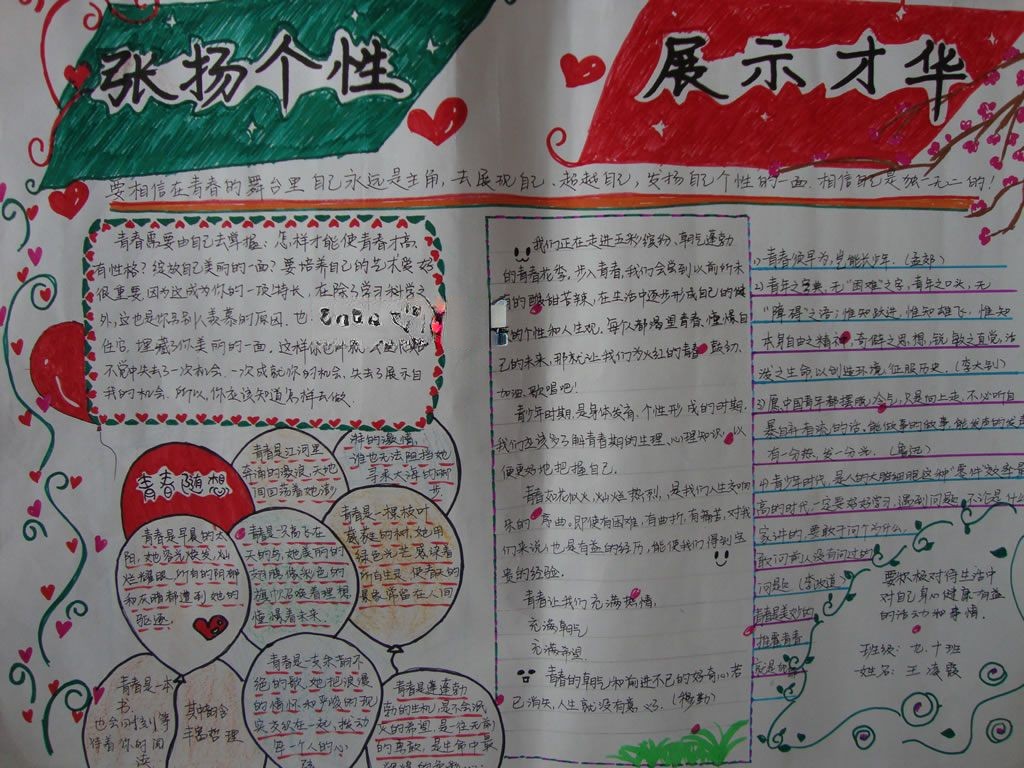 张扬个性
展示才华
要相信在青春的舞台里自己永远是主角,去展现自己、超越自己,发扬自己个性的一面.相信自己是独一无二的!
青春需要由自己去掌握:怎样才能使青春才富
有性格?绽放自己美丽的一面?要培养自己的艺术爱好
很重要.因为这成为你的一项特长,在除了学习科学之
外,这也是你另别人羡慕的原因.也
住它,埋藏了你美丽的一面.这样你也
不觉中失去了一次机会.一次成就你的机会.失去了展示自
我的机会.所以,你应该知道怎样去做.
青春随想
青春是江河里
奔涌的激浪,天地
间回荡着她澎
湃的激情,
谁也无法阻挡她
寻求大海的脚
步.
青春是早晨的太
阳,她容光焕发,灿
烂耀眼.所有的阴郁
和灰暗都遭到她的
驱逐.
天的鸟,她美丽的
翅膀像彩色的
旗巾召唤着理想
憧憬着未来.
青春是一棵枝叶
茂雄的树,她用
绿色光芒感染着
所有生灵.使春天的
景象常留在人间
青春是一本
书.
等待着你的阅
读
其中的含
丰富哲理
青春是一支余韵不
绝的歌,她把浪漫
的情怀和严峻的现
实交织在一起,拨动
每一个人的心
弦
青春是蓬蓬勃
勃的生机,是不会泯
灭的希望,是一往无前
的勇敢,是生命中最
我们正在走进五彩缤纷、朝气蓬勃
的青春花季。步入青春,我们会尝到以前所未
有的酸甜苦辣,在生活中逐步形成自己的健
的个性和人生观。每个人都渴望青春,憧憬自
己的未来,那就让我们为火红的青春鼓劲、
加油、歌唱吧!
青少年时期,是身体发育、个性形成的时期.
我们应该多了解青春期的生理、心理知识,以
便更好地把握自己.
青春如花似火,灿烂热烈,是我们人生交响
乐的序曲。即使有困难,有曲折,有痛苦,对我
们来说,也是有益的经历,能使我们得到宝
贵的经验.
青春让我们充满热情,
充满朝气
充满希望.
青春的朝气和向进不已的好奇心若
已消失,人生就没有意义了.(穆勒)
1)青春便早为,岂能长少年.(孟郊)
2)青年之字典,无“困难”之字,青年之口头,无
“障碍”之语;惟知跃进,惟知雄飞,惟知
本身自由之精神,奇僻之思想,锐敏之直觉,活
泼之生命,以创造环境,征服历史.(李大钊)
3)愿中国青年都摆脱冷气,只是向上走,不必听自
暴自弃者流的话.能做事的做事,能发声的发声
有一分热,发一分光.(鲁迅)
高的时代,一定要好好学习,遇到问题,不论是什么
家讲的,要敢于问个为什么,
敢问前人没有问过的
问题.(李政道)
青春是美妙的
要积极对待生活中
对自己身心健康有益
的活动和事情.
班级:九.十班
姓名:王海霞